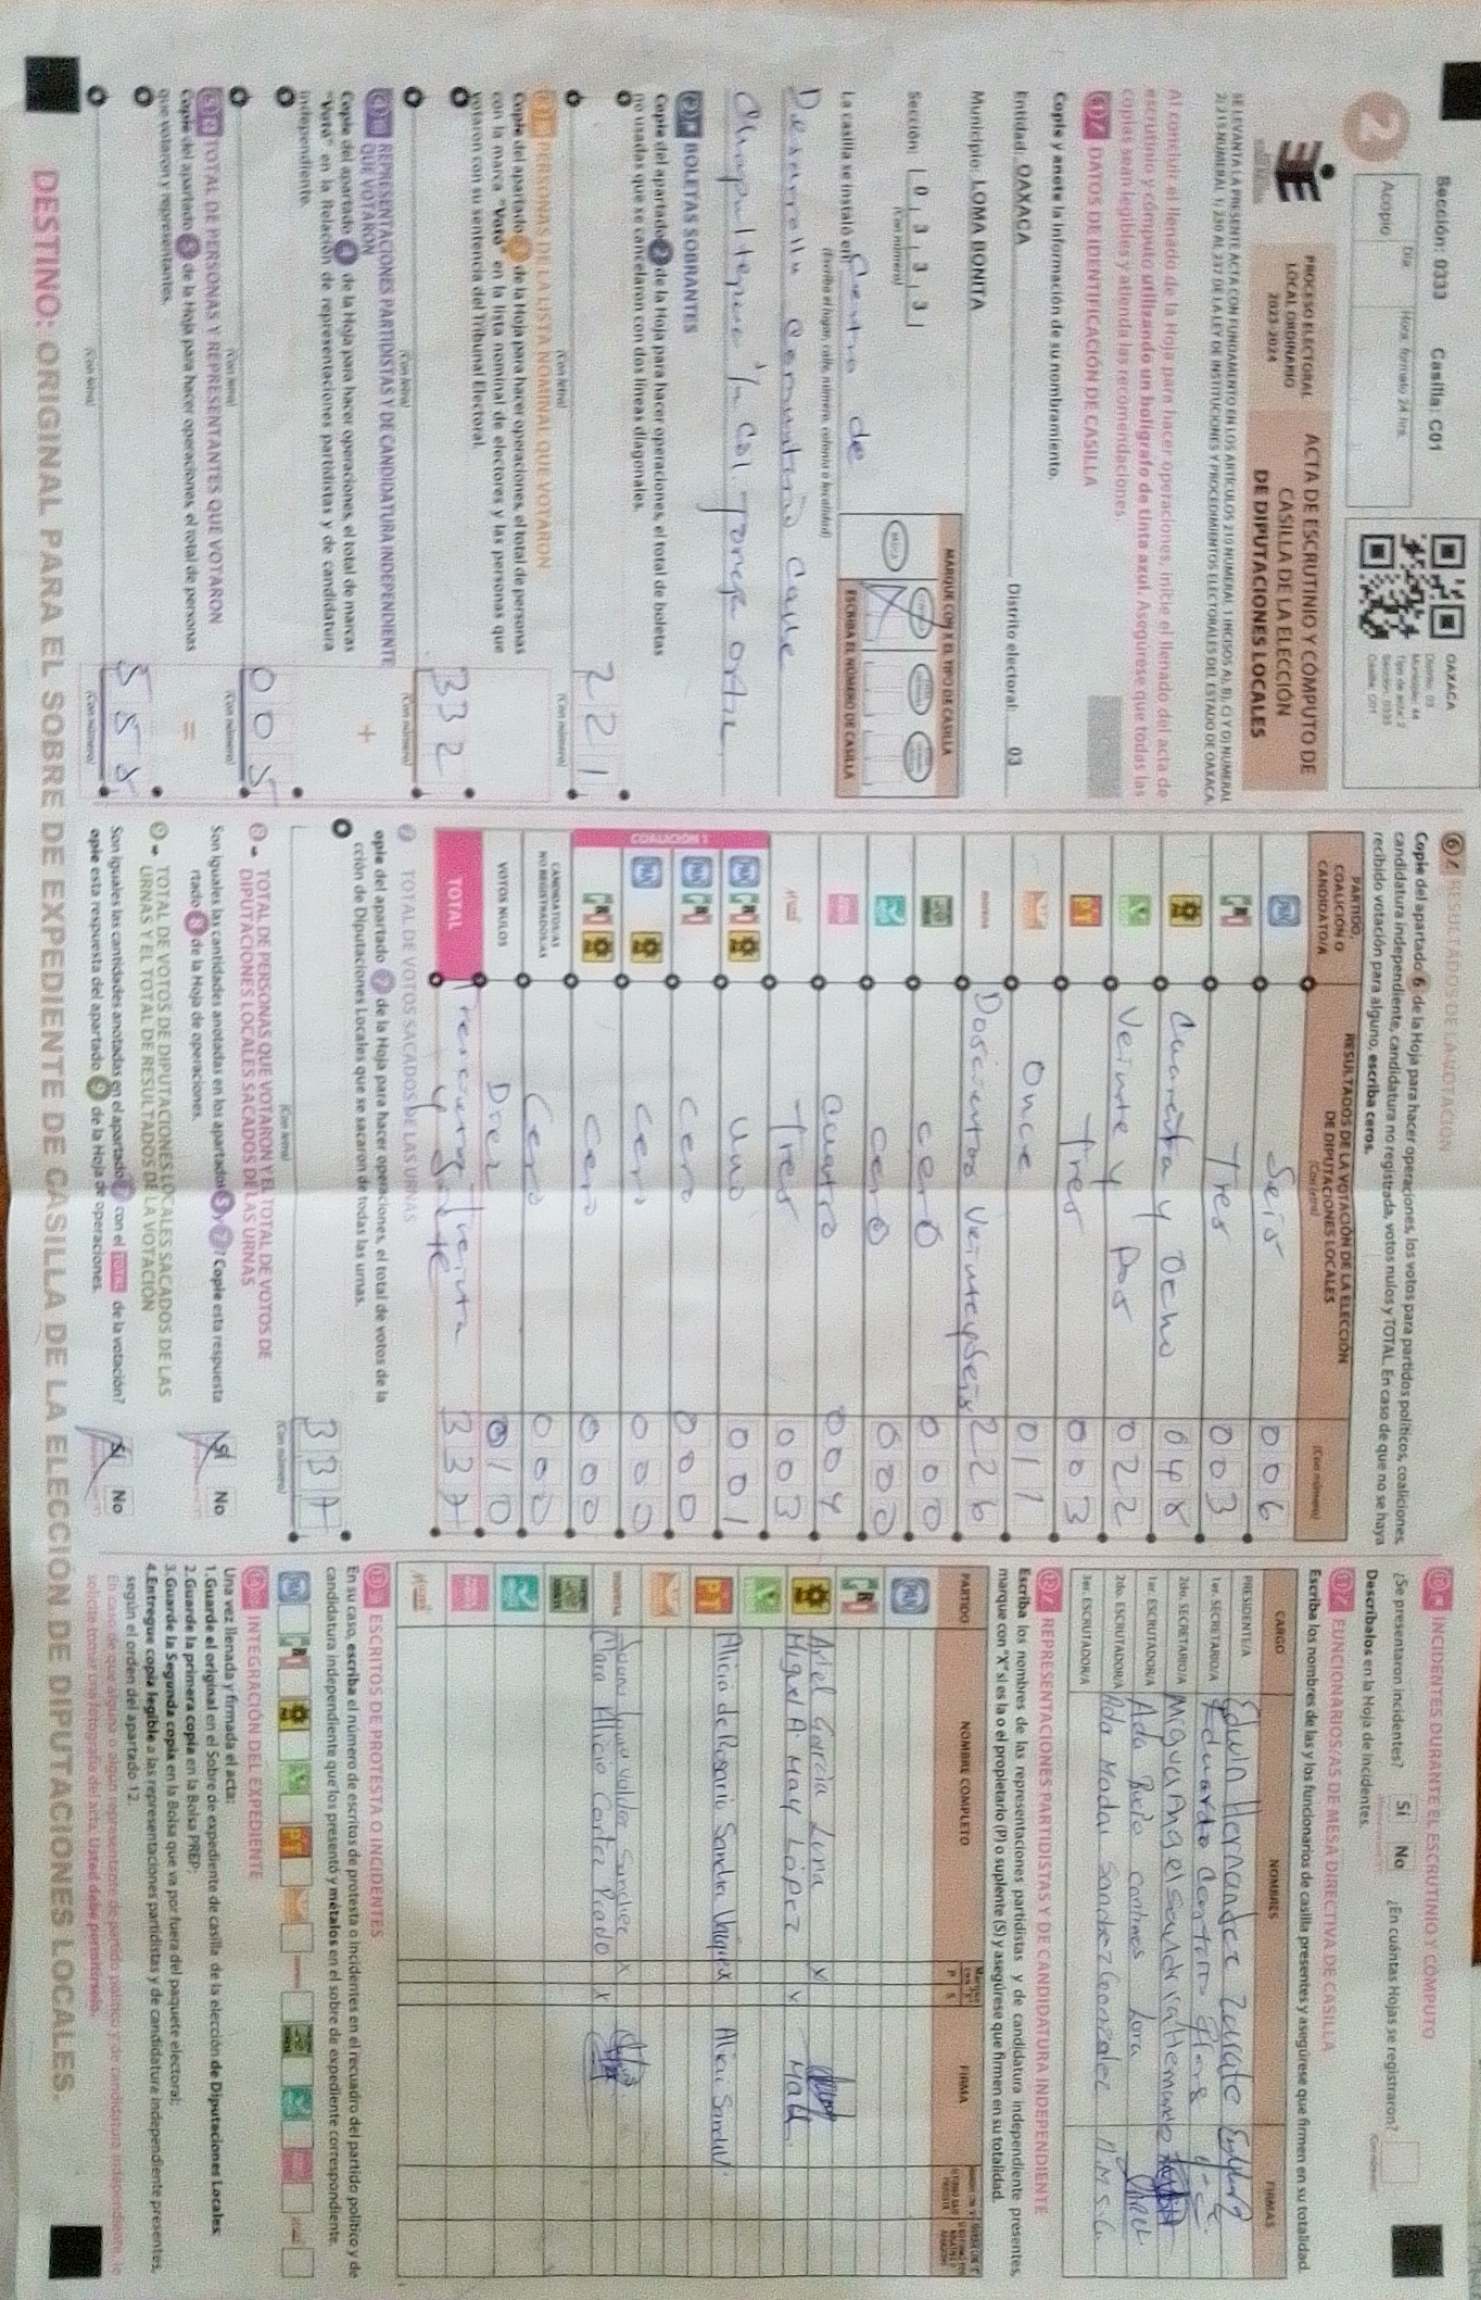 Sección: 0333 Casilla: C01
2
Día
Hora: formato 24 hrs.
Acopio
OAXACA
Distrito: 03
Municipio: 44
Tipo de acta: 2
Sección: 0333
Casilla: C01
PROCESO ELECTORAL
LOCAL ORDINARIO
2023-2024
ACTA DE ESCRUTINIO Y CÓMPUTO DE
CASILLA DE LA ELECCIÓN
DE DIPUTACIONES LOCALES
Al concluir el llenado de la Hoja para hacer operaciones, inicie el llenado del acta de
escrutinio y cómputo utilizando un bolígrafo de tinta azul. Asegúrese que todas las
copias sean legibles y atienda las recomendaciones.
DATOS DE IDENTIFICACIÓN DE CASILLA
Copie y anote la información de su nombramiento.
Entidad: OAXACA Distrito electoral: 03
Municipio: LOMA BONITA
Sección: 0 3 3 3
(Con número)
MARQUE CON X EL TIPO DE CASILLA
ESCRIBA EL NÚMERO DE CASILLA
La casilla se instaló en: Centro de
(Escriba el lugar, calle, número, colonia o localidad)
Desarrollo Comunitario Calle
BOLETAS SOBRANTES
Copie del apartado 2 de la Hoja para hacer operaciones, el total de boletas
no usadas que se cancelaron con dos líneas diagonales.
(Con letra)
221
(Con número)
PERSONAS DE LA LISTA NOMINAL QUE VOTARON
Copie del apartado de la Hoja para hacer operaciones, el total de personas
con la marca "Votó" en la lista nominal de electores y las personas que
votaron con su sentencia del Tribunal Electoral.
(Con letra)
332
(Con número)
+
REPRESENTACIONES PARTIDISTAS Y DE CANDIDATURA INDEPENDIENTE
QUE VOTARON
Copie del apartado 4 de la Hoja para hacer operaciones, el total de marcas
"Votó" en la Relación de representaciones partidistas y de candidatura
independiente.
(Con letra)
005
(Con número)
=
TOTAL DE PERSONAS Y REPRESENTANTES QUE VOTARON
Copie del apartado 5 de la Hoja para hacer operaciones, el total de personas
que votaron y representantes.
(Con letra)
(Con número)
6 RESULTADOS DE LA VOTACIÓN
Copie del apartado 6 de la Hoja para hacer operaciones, los votos para partidos políticos, coaliciones,
candidatura independiente, candidatura no registrada, votos nulos y TOTAL. En caso de que no se haya
recibido votación para alguno, escriba ceros.
PARTIDO,
COALICIÓN O
CANDIDATO/A
RESULTADOS DE LA VOTACIÓN DE LA ELECCIÓN
DE DIPUTACIONES LOCALES
(Con letra)
(Con número)
PAN Seis 006
PRI Tres 003
Cuarenta y Ocho 048
Veinte y Dos 022
PT Tres 003
Once 011
morena Doscientos Veinteyseis 226
cero 000
cero 000
cuatro 004
Tres 003
COALICIÓN 1
PAN PRI Uno 001
PAN PRI cero 000
PAN cero 000
PRI cero 000
CANDIDATOS/AS
NO REGISTRADOS/AS Cero 000
VOTOS NULOS Diez 010
TOTAL Trescientos Treinta
y Siete 337
7 TOTAL DE VOTOS SACADOS DE LAS URNAS
opie del apartado 7 de la Hoja para hacer operaciones, el total de votos de la
cción de Diputaciones Locales que se sacaron de todas las urnas.
337
(Con letra)
(Con número)
TOTAL DE PERSONAS QUE VOTARON Y EL TOTAL DE VOTOS DE
DIPUTACIONES LOCALES SACADOS DE LAS URNAS
Son iguales las cantidades anotadas en los apartados 5 y 7? Copie esta respuesta
rtado 8 de la Hoja de operaciones.
Sí No
TOTAL DE VOTOS DE DIPUTACIONES LOCALES SACADOS DE LAS
URNAS Y EL TOTAL DE RESULTADOS DE LA VOTACIÓN
Son iguales las cantidades anotadas en el apartado 7 con el TOTAL de la votación?
opie esta respuesta del apartado 9 de la Hoja de operaciones.
Sí No
INCIDENTES DURANTE EL ESCRUTINIO Y CÓMPUTO
¿Se presentaron incidentes? Sí No ¿En cuántas Hojas se registraron?
Descríbalos en la Hoja de Incidentes.
FUNCIONARIOS/AS DE MESA DIRECTIVA DE CASILLA
Escriba los nombres de las y los funcionarios de casilla presentes y asegúrese que firmen en su totalidad.
CARGO NOMBRES FIRMAS
PRESIDENTE/A Edwin Hernandez Zarate
1er. SECRETARIO/A Eduardo Cantoro Flores
2do. SECRETARIO/A Miguel Angel
1er. ESCRUTADOR/A Ada Lara
2do. ESCRUTADOR/A Ada Madai Sanchez Gonzalez A.M.S.G
3er. ESCRUTADOR/A
12 REPRESENTACIONES PARTIDISTAS Y DE CANDIDATURA INDEPENDIENTE
Escriba los nombres de las representaciones partidistas y de candidatura independiente presentes,
marque con "X" si es la o el propietario (P) o suplente (S) y asegúrese que firmen en su totalidad.
PARTIDO NOMBRE COMPLETO P S FIRMA
PAN
PRI
Ariel Garcia Luna x
Miguel A. May López
PT Alicia de Rosario Sandra
morena Sanchez x
Clara Alicia Cortez Prado x
ESCRITOS DE PROTESTA O INCIDENTES
En su caso, escriba el número de escritos de protesta o incidentes en el recuadro del partido político y de
candidatura independiente que los presentó y métalos en el sobre de expediente correspondiente.
PAN PRI PT
INTEGRACIÓN DEL EXPEDIENTE
Una vez llenada y firmada el acta:
1.Guarde el original en el Sobre de expediente de casilla de la elección de Diputaciones Locales;
2.Guarde la primera copia en la Bolsa PREP;
3.Guarde la Segunda copia en la Bolsa que va por fuera del paquete electoral;
4.Entregue copia legible a las representaciones partidistas y de candidatura independiente presentes,
según el orden del apartado 12.
En caso de que alguna o algún representante de partido político y de candidatura independiente, le
solicite tomar una fotografía del acta, Usted debe permitírselo.
DESTINO: ORIGINAL PARA EL SOBRE DE EXPEDIENTE DE CASILLA DE LA ELECCIÓN DE DIPUTACIONES LOCALES.